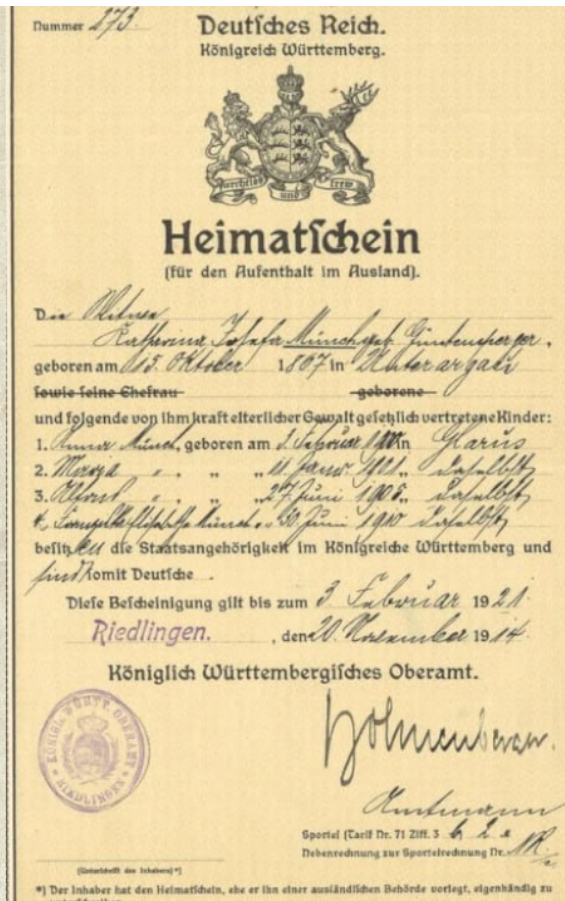 Nummer 273.
Deutsches Reich.
Königreich Württemberg.
furchtlos und trew
Heimatschein
(für den Aufenthalt im Ausland).
Die Witwe
Katharina Josefa Münch geb.
geboren am 15. Oktober 1867 in
sowie seine Ehefrau geborene
und folgende von ihm kraft elterlicher Gewalt gesetzlich vertretene Kinder:
1. Anna Münch, geboren am Februar in Glarus
2. " " " 11. daselbst
3. " " " 27. Juni 1905 " daselbst
4. Münch " 30. Juni 1910 daselbst
besitzen die Staatsangehörigkeit im Königreiche Württemberg und
sind somit Deutsche.
Diese Bescheinigung gilt bis zum 3. Februar 1921.
Riedlingen. , den 20. November 1914.
Königlich Württembergisches Oberamt.
KÖNIGL. WÜRTT. OBERAMT RIEDLINGEN
Amtmann
Sportel (Tarif Nr. 71 Ziff. 3
Nebenrechnung zur Sportelrechnung Nr.
(Unterschrift des Inhabers) *)
*) Der Inhaber hat den Heimatschein, ehe er ihn einer ausländischen Behörde vorlegt, eigenhändig zu